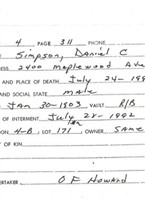 4 PAGE 311 PHONE
Simpson, Daniel C
ESS 2400 Maplewood Ave
AND PLACE OF DEATH July 24-199
AND SOCIAL STATE MALE
JAN 30-1903 VAULT R/B
OF INTERMENT July 28-1992
ON H-B LOT 171 OWNER SAME
OF KIN
ERTAKER OF Howard